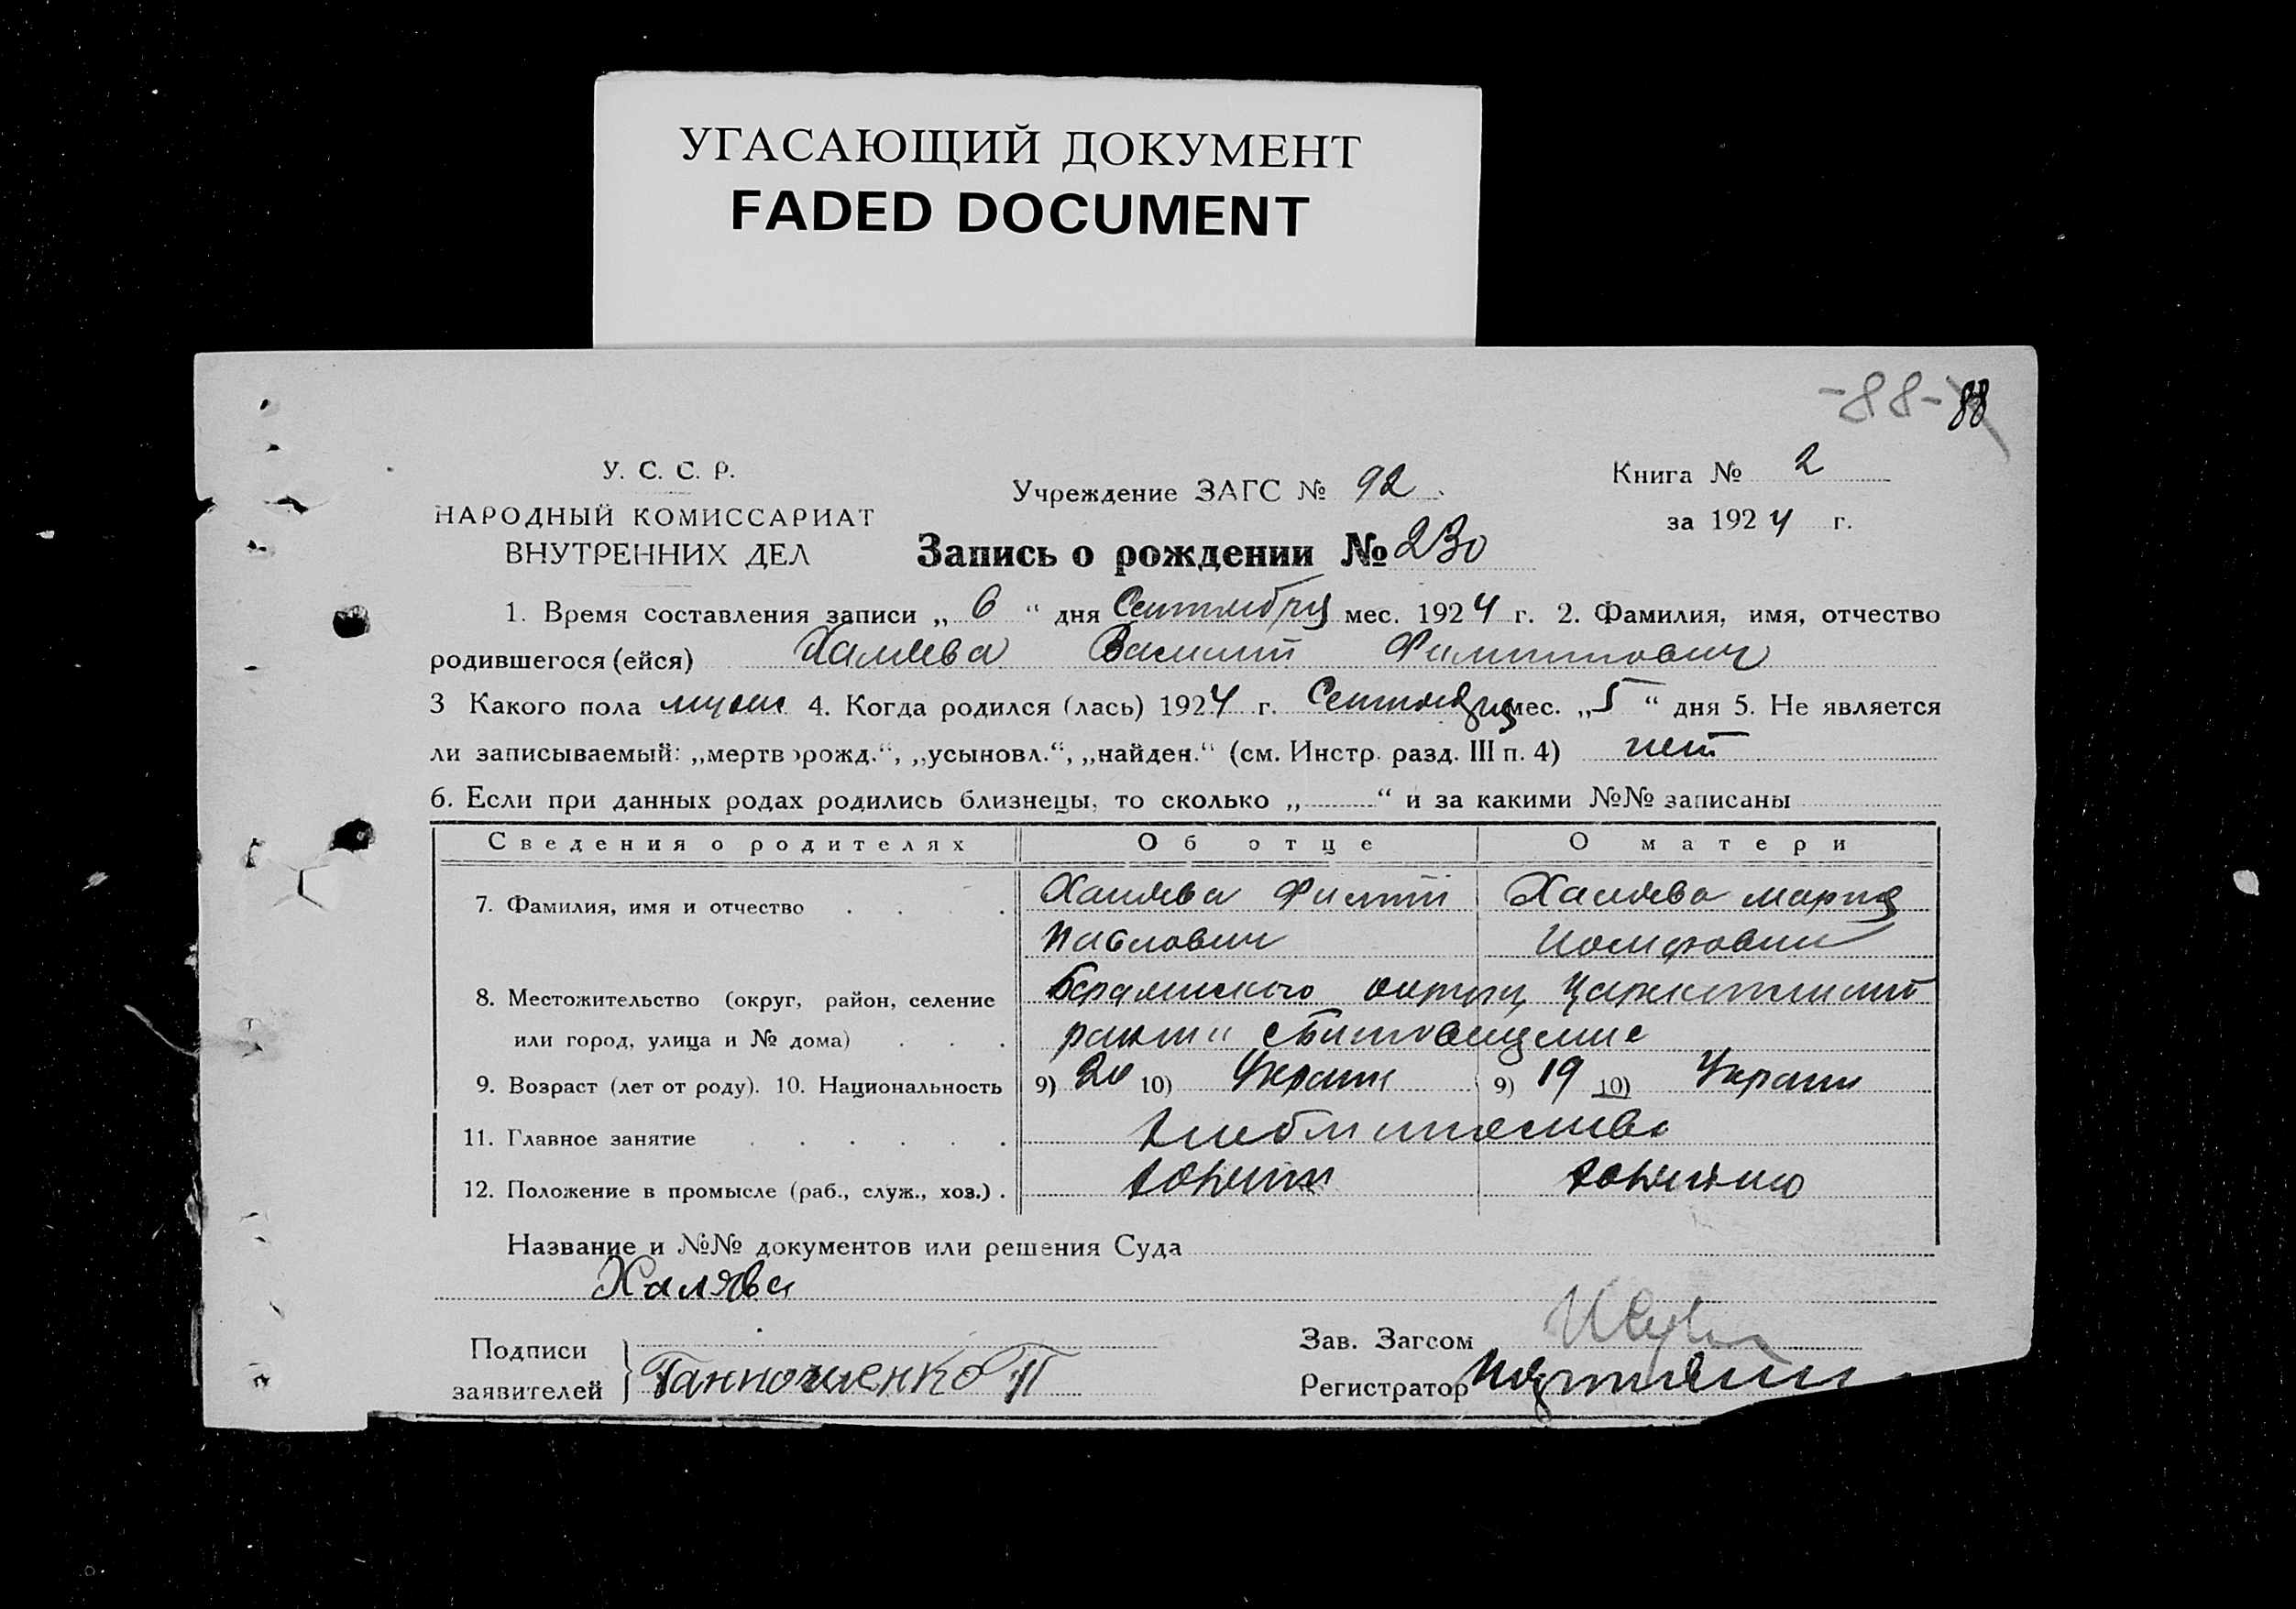 УГАСАЮЩИЙ ДОКУМЕНТ
FADED DOCUMENT
-88- 88
У. С. С. Р.
НАРОДНЫЙ КОМИССАРИАТ
ВНУТРЕННИХ ДЕЛ
Учреждение ЗАГС № 92
Книга № 2
за 1924 г.
Запись о рождении № 230
1. Время составления записи „ 6 “ дня Сентября мес. 1924 г. 2. Фамилия, имя, отчество
родившегося (ейся) Халява Василий Филиппович
3 Какого пола муж 4. Когда родился (лась) 1924 г. Сентября мес. „ 5 “ дня 5. Не является
ли записываемый: „мертворожд.“, „усыновл.“, „найден.“ (см. Инстр. разд. III п. 4) нет
6. Если при данных родах родились близнецы, то сколько „ “ и за какими №№ записаны
Сведения о родителях Об отце О матери
7. Фамилия, имя и отчество Халява Филипп Халява Мария
Павлович
8. Местожительство (округ, район, селение
или город, улица и № дома)
9. Возраст (лет от роду). 10. Национальность 9) 20 10) Украин 9) 19 10) Украин
11. Главное занятие
12. Положение в промысле (раб., служ., хоз.)
Название и №№ документов или решения Суда
Халява
Подписи
заявителей
Зав. Загсом
Регистратор